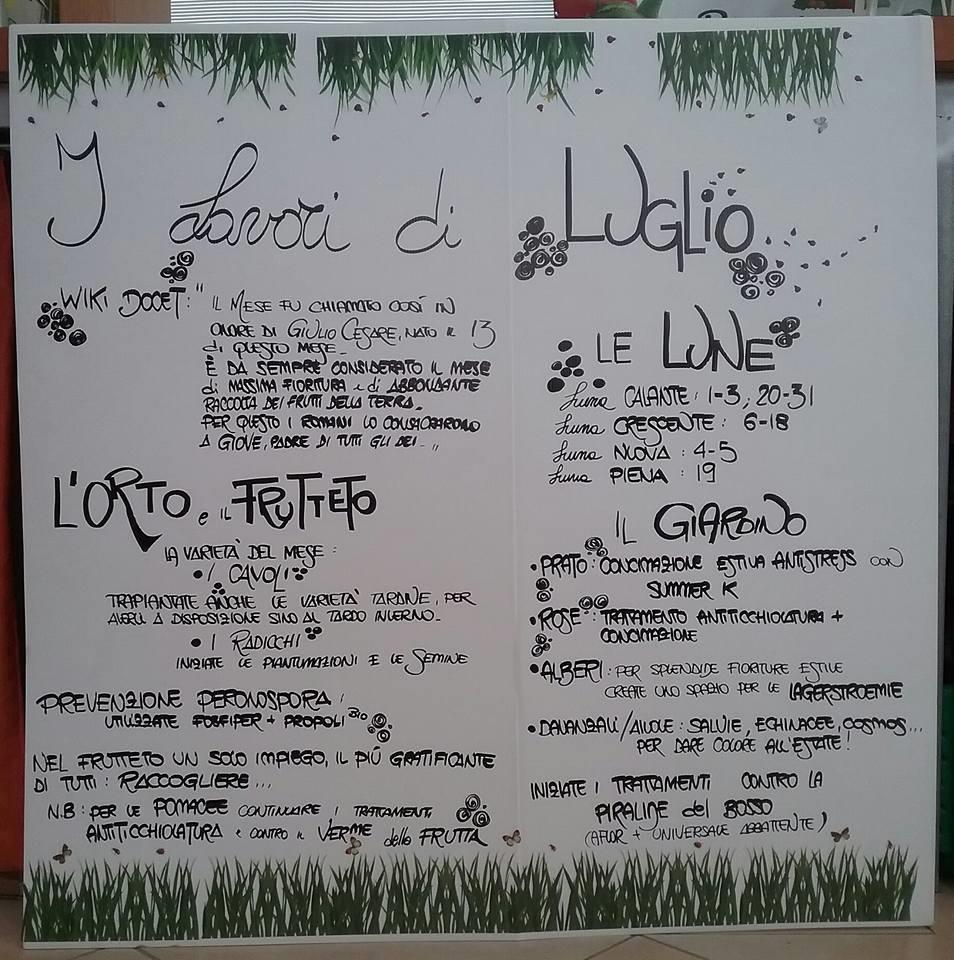 I Lavori di LUGLIO
WIKI DOCET: "IL MESE FU CHIAMATO COSÍ IN
ONORE DI GIULIO CESARE, NATO IL 13
di QUESTO MESE_
È DA SEMPRE CONSIDERATO IL MESE
di MASSIMA FIORITURA e di ABBONDANTE
RACCOLTA DEI FRUTTI DELLA TERRA_
PER QUESTO I ROMANI LO CONSACRARONO
A GIOVE, PADRE DI TUTTI GLI DEI_"
L'ORTO e IL FRUTTETO
LA VARIETA' DEL MESE:
• I CAVOLI
TRAPIANTATE ANCHE LE VARIETA' TARDIVE, PER
AVERLI A DISPOSIZIONE SINO AL TARDO INVERNO_
• I RADICCHI
INIZIATE LE PIANTUMAZIONI E LE SEMINE
PREVENZIONE PERONOSPORA:
UTILIZZATE FOSFIPER + PROPOLI BIO
NEL FRUTTETO UN SOLO IMPIEGO, IL PIÚ GRATIFICANTE
DI TUTTI: RACCOGLIERE...
N.B: PER LE POMACEE CONTINUARE I TRATTAMENTI
ANTITICCHIOLATURA e CONTRO IL VERME della FRUTTA
LE LUNE
Luna CALANTE: 1-3, 20-31
Luna CRESCENTE: 6-18
Luna NUOVA: 4-5
Luna PIENA: 19
IL GIARDINO
• PRATO: CONCIMAZIONE ESTIVA ANTISTRESS CON
SUMMER K
• ROSE: TRATTAMENTO ANTITICCHIOLATURA +
CONCIMAZIONE
• ALBERI: PER SPLENDIDE FIORITURE ESTIVE
CREATE UNO SPAZIO PER LE LAGERSTROEMIE
• DAVANZALI/AIUOLE: SALVIE, ECHINACEE, COSMOS...
PER DARE COLORE ALL'ESTATE!
INIZIATE I TRATTAMENTI CONTRO LA
PIRALIDE del BOSSO
(AFLOR + UNIVERSALE ABBATTENTE)